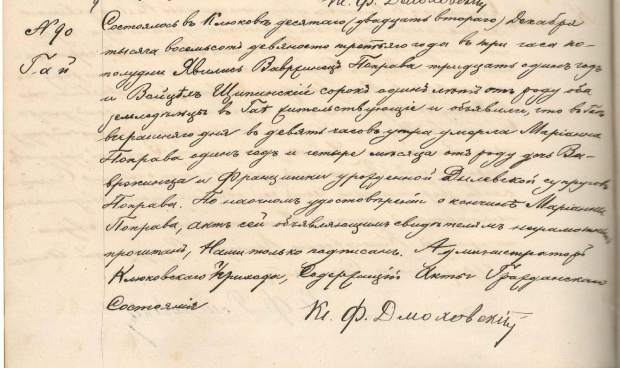 Кс. Ф. Дмоховскій
N 90 Состоялось въ Клюковѣ десятаго (двадцать втораго) Декабря
Гай тысяча восемьсотъ девяносто третьяго года въ три часа по-
полудни Явились Вавринецъ Поправа тридцать одинъ годъ
и Войцѣхъ Щипинскій сорокъ одинъ лѣтъ отъ роду оба
земледѣльцы въ Гаѣ жительствующіе и объявили, что въ
вчерашняго дня въ девять часовъ утра умерла Маріанна
Поправа одинъ годъ и четыре мѣсяца отъ роду дочь Ва-
вржинца и Францишки урожденной Дылевской супруговъ
Поправа. По наочномъ удостовѣреніи о кончинѣ Маріанны
Поправа, актъ сей объявляющимъ свидѣтелямъ неграмотнымъ
прочитанъ, Нами только подписанъ. Администраторъ
Клюковскаго Прихода, Содержащій Акты Гражданскаго
Состоянія
Кс. Ф. Дмоховскій